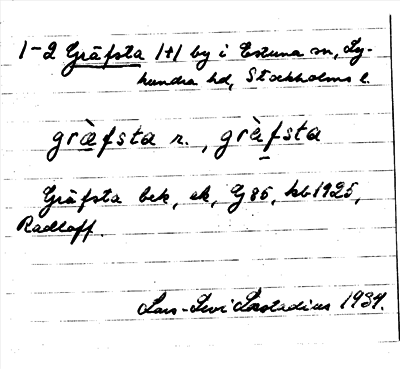 1-2 Gräfsta 1+1 by i Estuna sn, Ly-
hundra hd, Stockholms l.
grȁfsta r., grȁfsta
Gräfsta bek, ek, G 86, kb 1925,
Radloff.
Lars-Levi Læstadius 1934.